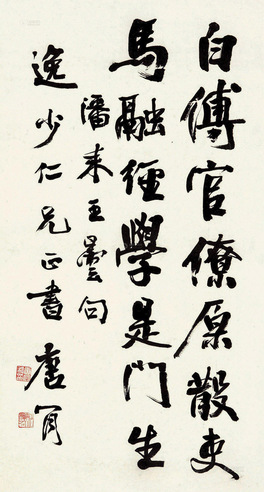 白傅官僚原散吏
馬融經學是門生
潘来王曇句
逸少仁兄正書 唐肯